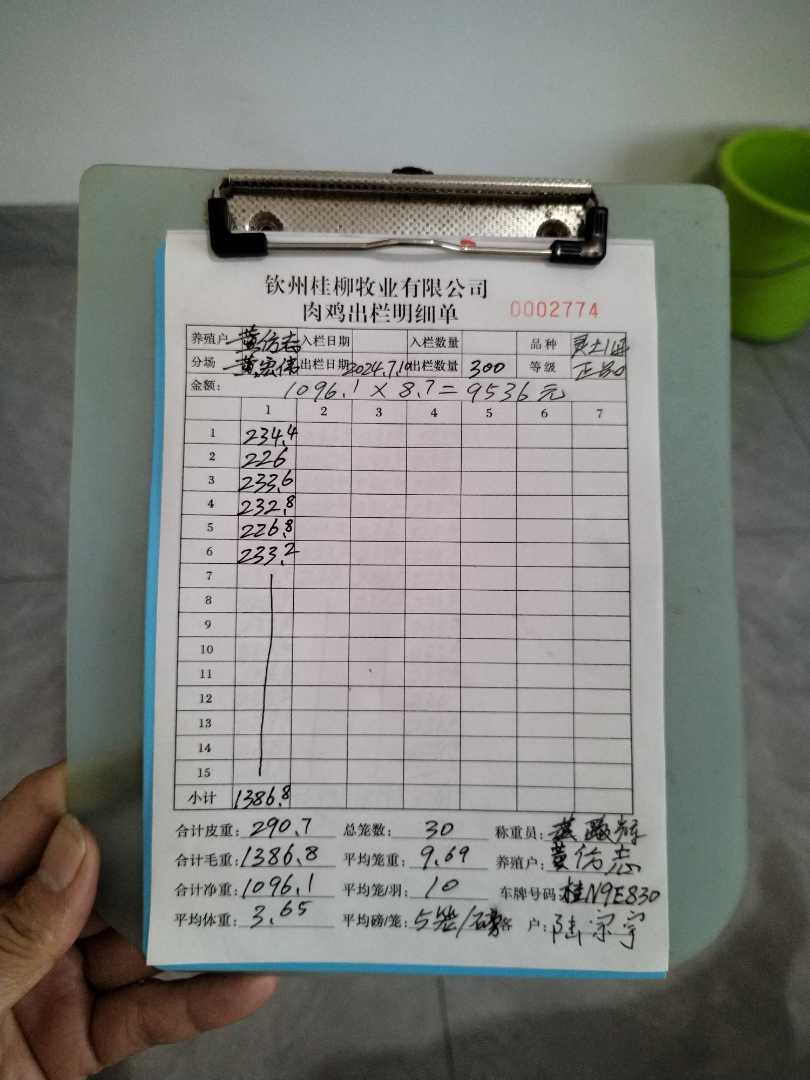 钦州桂柳牧业有限公司
肉鸡出栏明细单 0002774
养殖户 黄仿志 入栏日期 入栏数量 品种 灵土1号
分场 黄宏伟 出栏日期 2024.7.19 出栏数量 300 等级
金额: 1096.1 × 8.7 = 9536元
1 2 3 4 5 6 7
1 234.4
2 226
3 233.6
4 232.8
5 226.8
6 233.2
7
8
9
10
11
12
13
14
15
小计 1386.8
合计皮重: 290.7 总笼数: 30 称重员:
合计毛重: 1386.8 平均笼重: 9.69 养殖户: 黄仿志
合计净重: 1096.1 平均笼/羽: 10 车牌号码: 桂N9E830
平均体重: 3.65 平均磅/笼: 5笼/磅 客 户: 陆宗宇